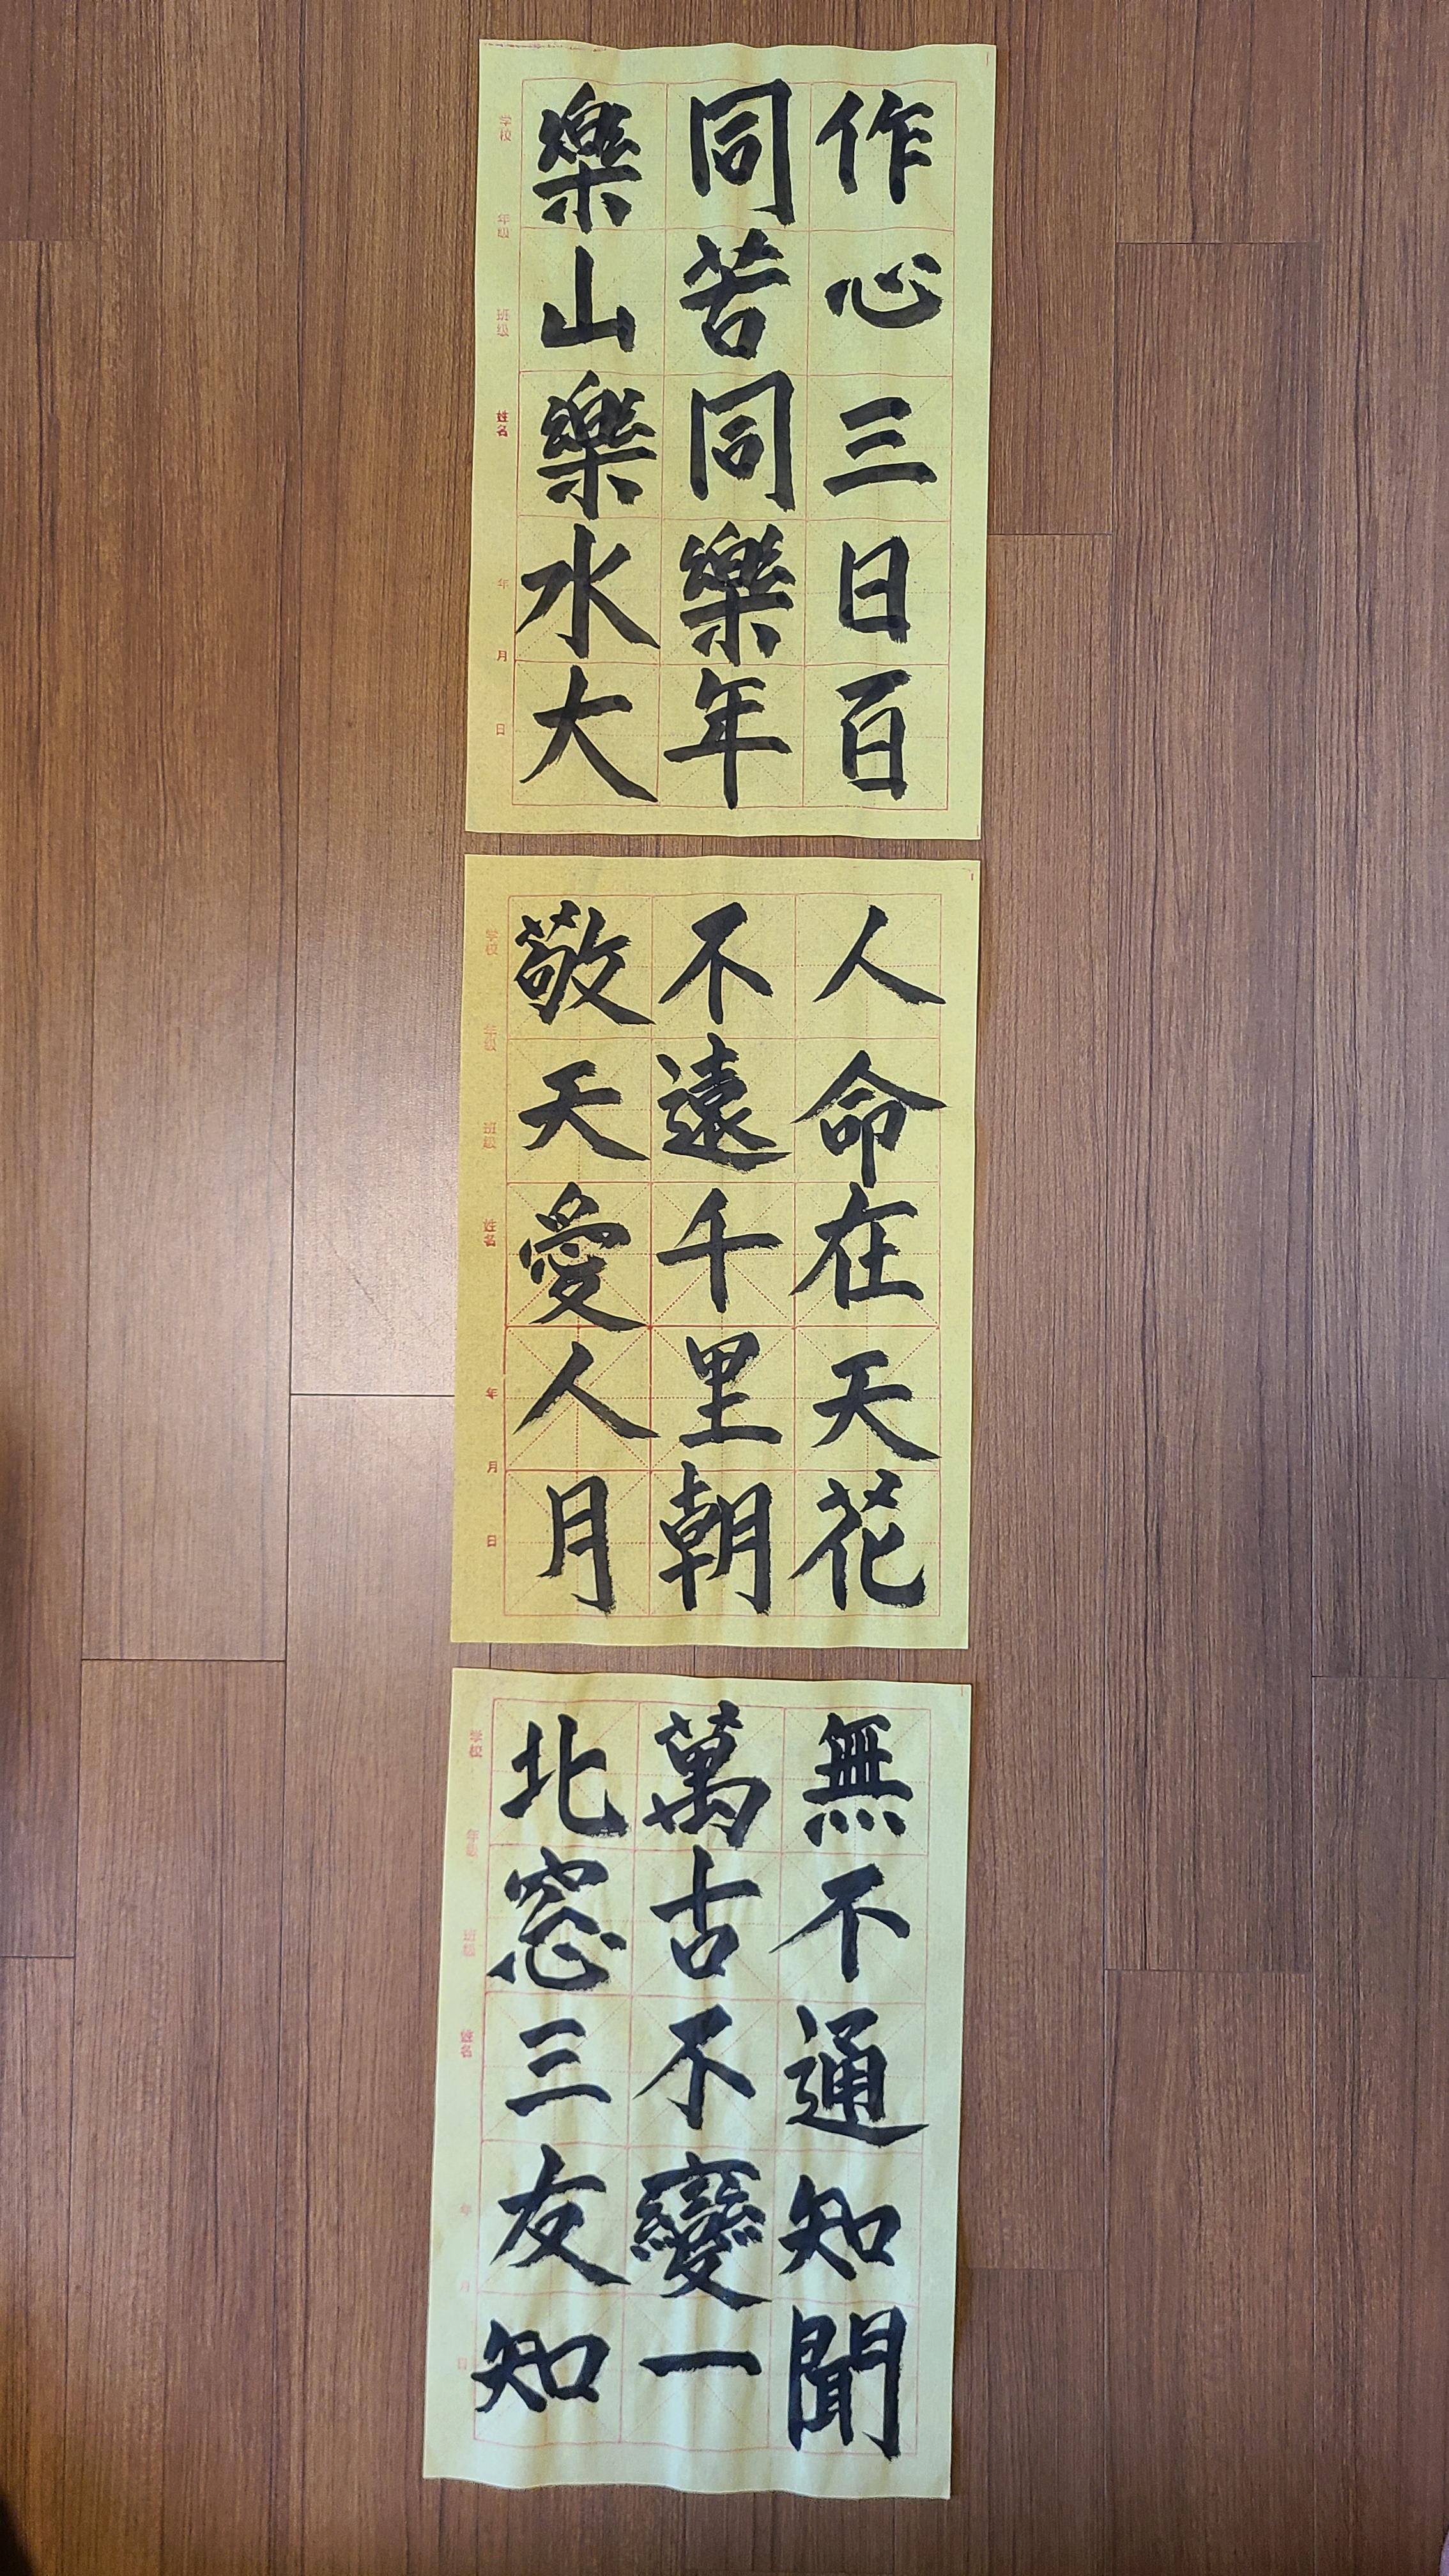 作心三日百
同苦同樂年
樂山樂水大
学校 年級 班級 姓名 年 月 日
人命在天花
不遠千里朝
敬天愛人月
学校 年級 班級 姓名 年 月 日
無不通知聞
萬古不變一
北窓三友知
学校 年級 班級 姓名 年 月 日